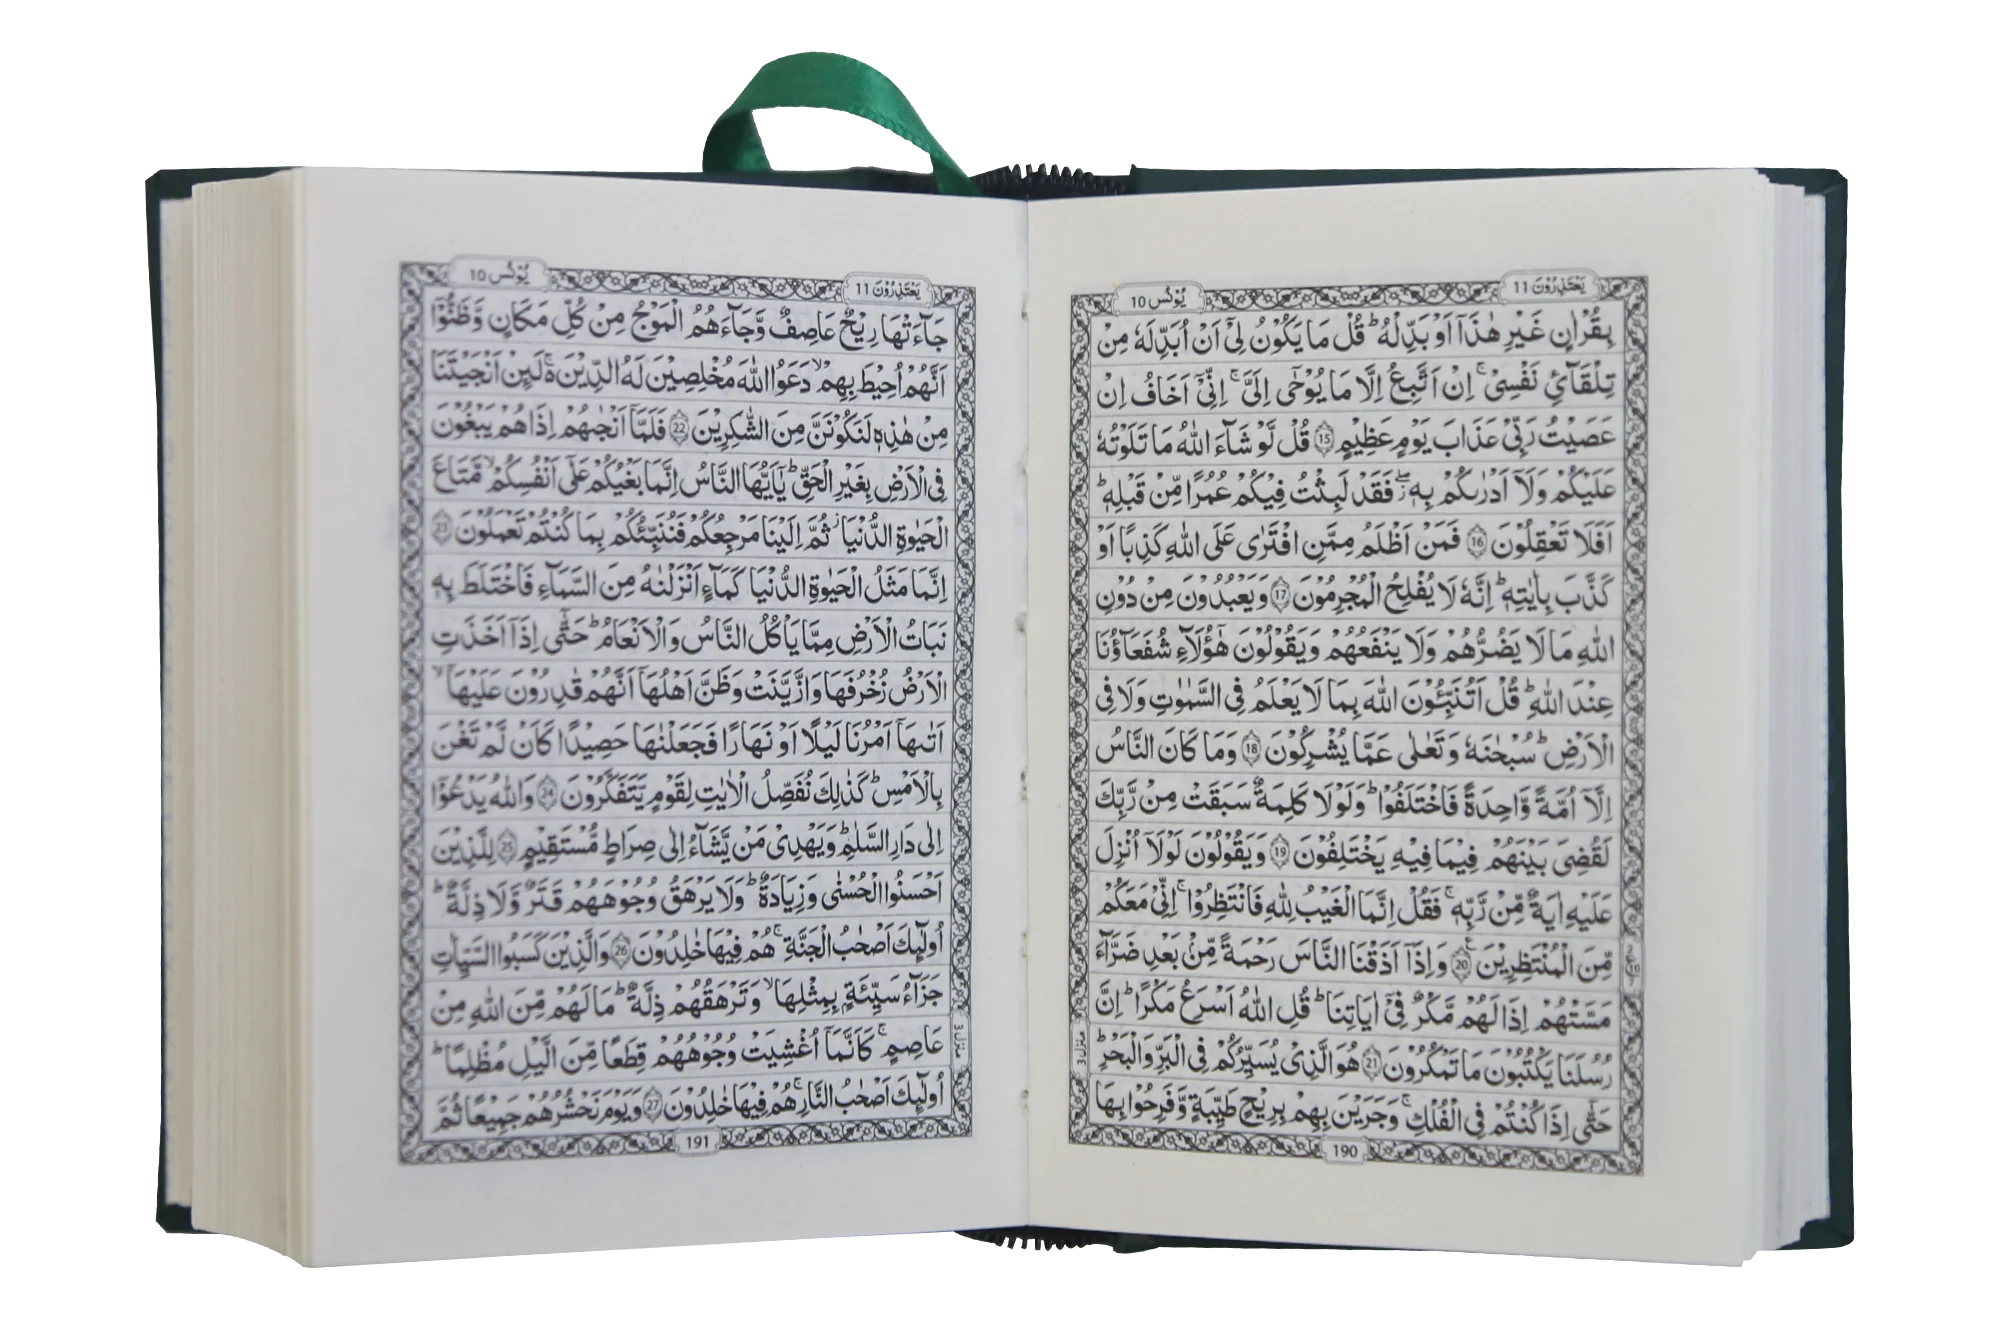 يُوْنُس 10
يَعْتَذِرُوْنَ 11
بِقُرْاٰنٍ غَيْرِ هٰذَاۤ اَوْ بَدِّلْهُ ؕ قُلْ مَا يَكُوْنُ لِیْۤ اَنْ اُبَدِّلَهٗ مِنْ
تِلْقَآئِ نَفْسِیْ ۚ اِنْ اَتَّبِعُ اِلَّا مَا يُوْحٰۤی اِلَیَّ ۚ اِنِّیْۤ اَخَافُ اِنْ
عَصَيْتُ رَبِّیْ عَذَابَ يَوْمٍ عَظِيْمٍ 15 قُلْ لَّوْ شَآءَ اللّٰهُ مَا تَلَوْتُهٗ
عَلَيْكُمْ وَلَاۤ اَدْرٰىكُمْ بِهٖ ۖ فَقَدْ لَبِثْتُ فِيْكُمْ عُمُرًا مِّنْ قَبْلِهٖ ؕ
اَفَلَا تَعْقِلُوْنَ 16 فَمَنْ اَظْلَمُ مِمَّنِ افْتَرٰی عَلَی اللّٰهِ كَذِبًا اَوْ
كَذَّبَ بِاٰيٰتِهٖ ؕ اِنَّهٗ لَا يُفْلِحُ الْمُجْرِمُوْنَ 17 وَيَعْبُدُوْنَ مِنْ دُوْنِ
اللّٰهِ مَا لَا يَضُرُّهُمْ وَلَا يَنْفَعُهُمْ وَيَقُوْلُوْنَ هٰۤؤُلَآءِ شُفَعَآؤُنَا
عِنْدَ اللّٰهِ ؕ قُلْ اَتُنَبِّـُٔوْنَ اللّٰهَ بِمَا لَا يَعْلَمُ فِی السَّمٰوٰتِ وَلَا فِی
الْاَرْضِ ؕ سُبْحٰنَهٗ وَتَعٰلٰی عَمَّا يُشْرِكُوْنَ 18 وَمَا كَانَ النَّاسُ
اِلَّاۤ اُمَّةً وَّاحِدَةً فَاخْتَلَفُوْا ؕ وَلَوْلَا كَلِمَةٌ سَبَقَتْ مِنْ رَّبِّكَ
لَقُضِیَ بَيْنَهُمْ فِيْمَا فِيْهِ يَخْتَلِفُوْنَ 19 وَيَقُوْلُوْنَ لَوْلَاۤ اُنْزِلَ
عَلَيْهِ اٰيَةٌ مِّنْ رَّبِّهٖ ۚ فَقُلْ اِنَّمَا الْغَيْبُ لِلّٰهِ فَانْتَظِرُوْا ۚ اِنِّیْ مَعَكُمْ
مِّنَ الْمُنْتَظِرِيْنَ 20 وَاِذَاۤ اَذَقْنَا النَّاسَ رَحْمَةً مِّنْۢ بَعْدِ ضَرَّآءَ
مَسَّتْهُمْ اِذَا لَهُمْ مَّكْرٌ فِیْۤ اٰيَاتِنَا ؕ قُلِ اللّٰهُ اَسْرَعُ مَكْرًا ؕ اِنَّ
رُسُلَنَا يَكْتُبُوْنَ مَا تَمْكُرُوْنَ 21 هُوَ الَّذِیْ يُسَيِّرُكُمْ فِی الْبَرِّ وَالْبَحْرِ ؕ
حَتّٰۤی اِذَا كُنْتُمْ فِی الْفُلْكِ ۚ وَجَرَيْنَ بِهِمْ بِرِيْحٍ طَيِّبَةٍ وَّفَرِحُوْا بِهَا
منزل 3
190
يُوْنُس 10
يَعْتَذِرُوْنَ 11
جَآءَتْهَا رِيْحٌ عَاصِفٌ وَّجَآءَهُمُ الْمَوْجُ مِنْ كُلِّ مَكَانٍ وَّظَنُّوْۤا
اَنَّهُمْ اُحِيْطَ بِهِمْ ۙ دَعَوُا اللّٰهَ مُخْلِصِيْنَ لَهُ الدِّيْنَ ۬ۚ لَئِنْ اَنْجَيْتَنَا
مِنْ هٰذِهٖ لَنَكُوْنَنَّ مِنَ الشّٰكِرِيْنَ 22 فَلَمَّاۤ اَنْجٰىهُمْ اِذَا هُمْ يَبْغُوْنَ
فِی الْاَرْضِ بِغَيْرِ الْحَقِّ ؕ يٰۤاَيُّهَا النَّاسُ اِنَّمَا بَغْيُكُمْ عَلٰۤی اَنْفُسِكُمْ ۙ مَّتَاعَ
الْحَيٰوةِ الدُّنْيَا ۫ ثُمَّ اِلَيْنَا مَرْجِعُكُمْ فَنُنَبِّئُكُمْ بِمَا كُنْتُمْ تَعْمَلُوْنَ 23
اِنَّمَا مَثَلُ الْحَيٰوةِ الدُّنْيَا كَمَآءٍ اَنْزَلْنٰهُ مِنَ السَّمَآءِ فَاخْتَلَطَ بِهٖ
نَبَاتُ الْاَرْضِ مِمَّا يَاْكُلُ النَّاسُ وَالْاَنْعَامُ ؕ حَتّٰۤی اِذَاۤ اَخَذَتِ
الْاَرْضُ زُخْرُفَهَا وَازَّيَّنَتْ وَظَنَّ اَهْلُهَاۤ اَنَّهُمْ قٰدِرُوْنَ عَلَيْهَاۤ ۙ
اَتٰىهَاۤ اَمْرُنَا لَيْلًا اَوْ نَهَارًا فَجَعَلْنٰهَا حَصِيْدًا كَاَنْ لَّمْ تَغْنَ
بِالْاَمْسِ ؕ كَذٰلِكَ نُفَصِّلُ الْاٰيٰتِ لِقَوْمٍ يَّتَفَكَّرُوْنَ 24 وَاللّٰهُ يَدْعُوْۤا
اِلٰی دَارِ السَّلٰمِ ؕ وَيَهْدِیْ مَنْ يَّشَآءُ اِلٰی صِرَاطٍ مُّسْتَقِيْمٍ 25 لِلَّذِيْنَ
اَحْسَنُوا الْحُسْنٰی وَزِيَادَةٌ ؕ وَلَا يَرْهَقُ وُجُوْهَهُمْ قَتَرٌ وَّلَا ذِلَّةٌ ؕ
اُولٰٓئِكَ اَصْحٰبُ الْجَنَّةِ ۚ هُمْ فِيْهَا خٰلِدُوْنَ 26 وَالَّذِيْنَ كَسَبُوا السَّيِّاٰتِ
جَزَآءُ سَيِّئَةٍۭ بِمِثْلِهَا ۙ وَتَرْهَقُهُمْ ذِلَّةٌ ؕ مَا لَهُمْ مِّنَ اللّٰهِ مِنْ
عَاصِمٍ ۚ كَاَنَّمَاۤ اُغْشِيَتْ وُجُوْهُهُمْ قِطَعًا مِّنَ الَّيْلِ مُظْلِمًا ؕ
اُولٰٓئِكَ اَصْحٰبُ النَّارِ ۚ هُمْ فِيْهَا خٰلِدُوْنَ 27 وَيَوْمَ نَحْشُرُهُمْ جَمِيْعًا ثُمَّ
منزل 3
191